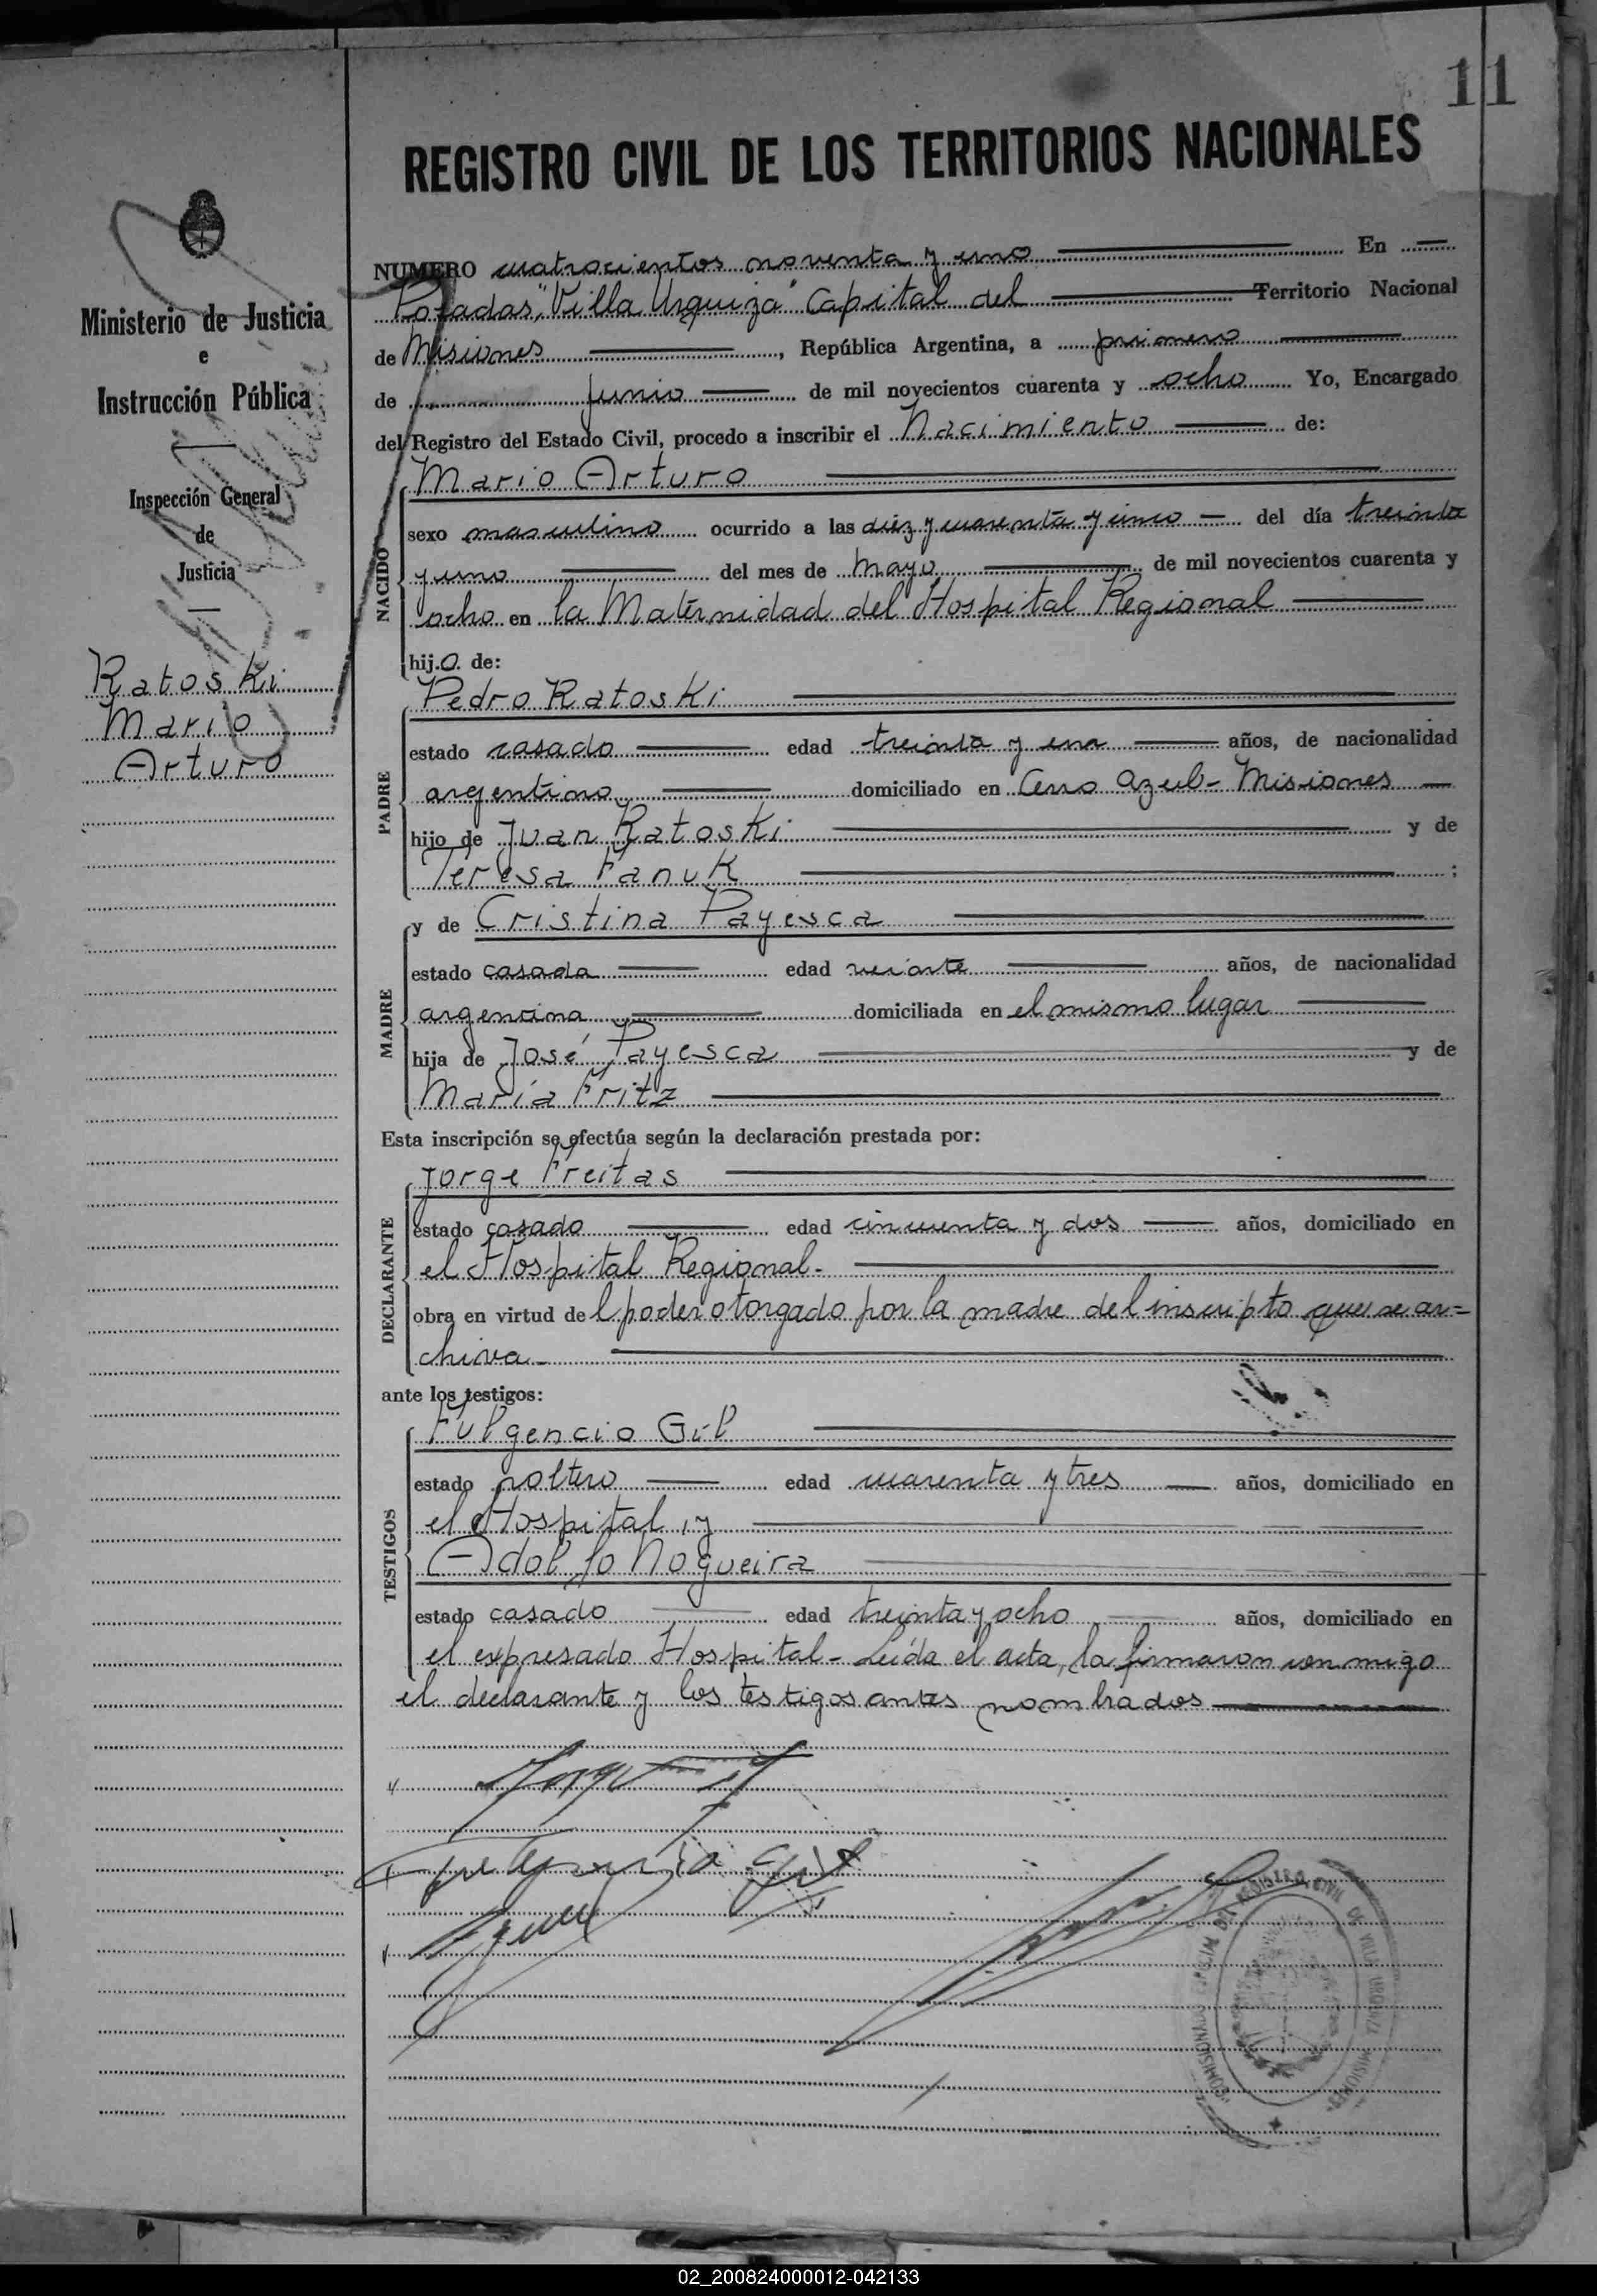 11
REGISTRO CIVIL DE LOS TERRITORIOS NACIONALES
Ministerio de Justicia
e
Instrucción Pública
Inspección General
de
Justicia
Ratoski
Mario
Arturo
NUMERO cuatrocientos noventa y uno En
Posadas, "Villa Urquiza" Capital del Territorio Nacional
de Misiones, República Argentina, a primero
de junio de mil novecientos cuarenta y ocho Yo, Encargado
del Registro del Estado Civil, procedo a inscribir el Nacimiento de:
NACIDO
Mario Arturo
sexo masculino ocurrido a las diez y cuarenta y cinco del día treinta
y uno del mes de Mayo de mil novecientos cuarenta y
ocho en la Maternidad del Hospital Regional
hijo de:
PADRE
Pedro Ratoski
estado casado edad treinta y un años, de nacionalidad
argentino domiciliado en Cerro Azul - Misiones
hijo de Juan Ratoski y de
Teresa Panuk ;
MADRE
y de Cristina Payesca
estado casada edad veinte años, de nacionalidad
argentina domiciliada en el mismo lugar
hija de José Payesca y de
María Fritz
Esta inscripción se efectúa según la declaración prestada por:
DECLARANTE
Jorge Freitas
estado casado edad cincuenta y dos años, domiciliado en
el Hospital Regional.
obra en virtud del poder otorgado por la madre del inscripto que se ar=
chiva.
ante los testigos:
TESTIGOS
Fulgencio Gil
estado soltero edad cuarenta y tres años, domiciliado en
el Hospital, y
Adolfo Nogueira
estado casado edad treinta y ocho años, domiciliado en
el expresado Hospital - Leída el acta, la firmaron conmigo
el declarante y los testigos antes nombrados
Fulgencio Gil
DEL REGISTRO CIVIL DE VILLA URQUIZA MISIONES
02_200824000012-042133